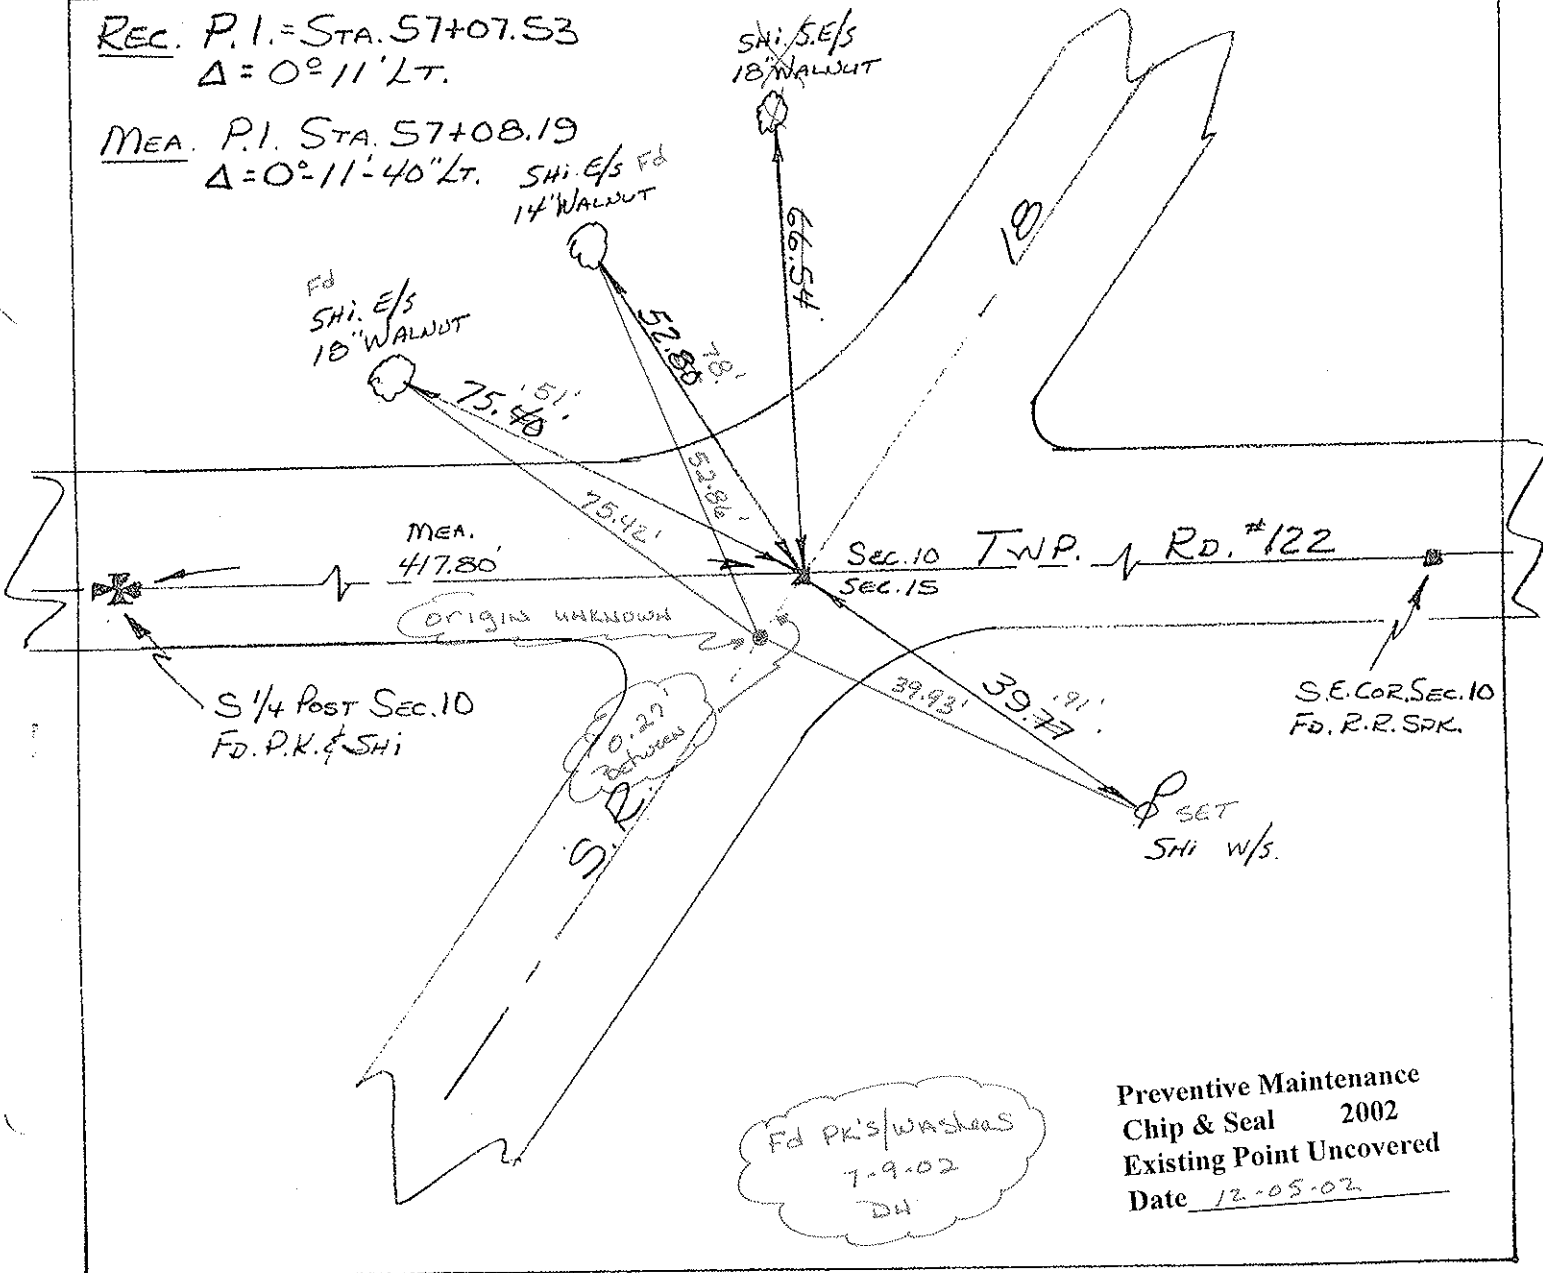 REC. P.I. = STA. 57+07.53
Δ = 0° 11' LT.
MEA. P.I. STA. 57+08.19
Δ = 0°-11'-40" LT.
SHi. S.E/S
18" WALNUT
SHi E/S Fd
14" WALNUT
Fd
SHi. E/S
18" WALNUT
66.54
18
52.80 78'
75.40 '51'
52.86'
75.42'
MEA.
417.80'
SEC. 10
SEC. 15
TWP. RD. #122
origin UNKNOWN
S 1/4 POST SEC. 10
FD. P.K. & SHi
0.27'
Between
39.93'
39.77 '.91'
S.E. COR. SEC. 10
FD. R.R. SPK.
S.R.
SET
SHi W/S.
Fd PK's/WASHERS
7-9-02
DH
Preventive Maintenance
Chip & Seal 2002
Existing Point Uncovered
Date 12-05-02